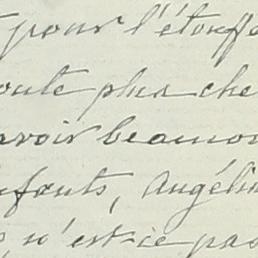 pour l'étouffe
oute plus che
avoir beaucou
nfants, Angélin
n'est-ce pas